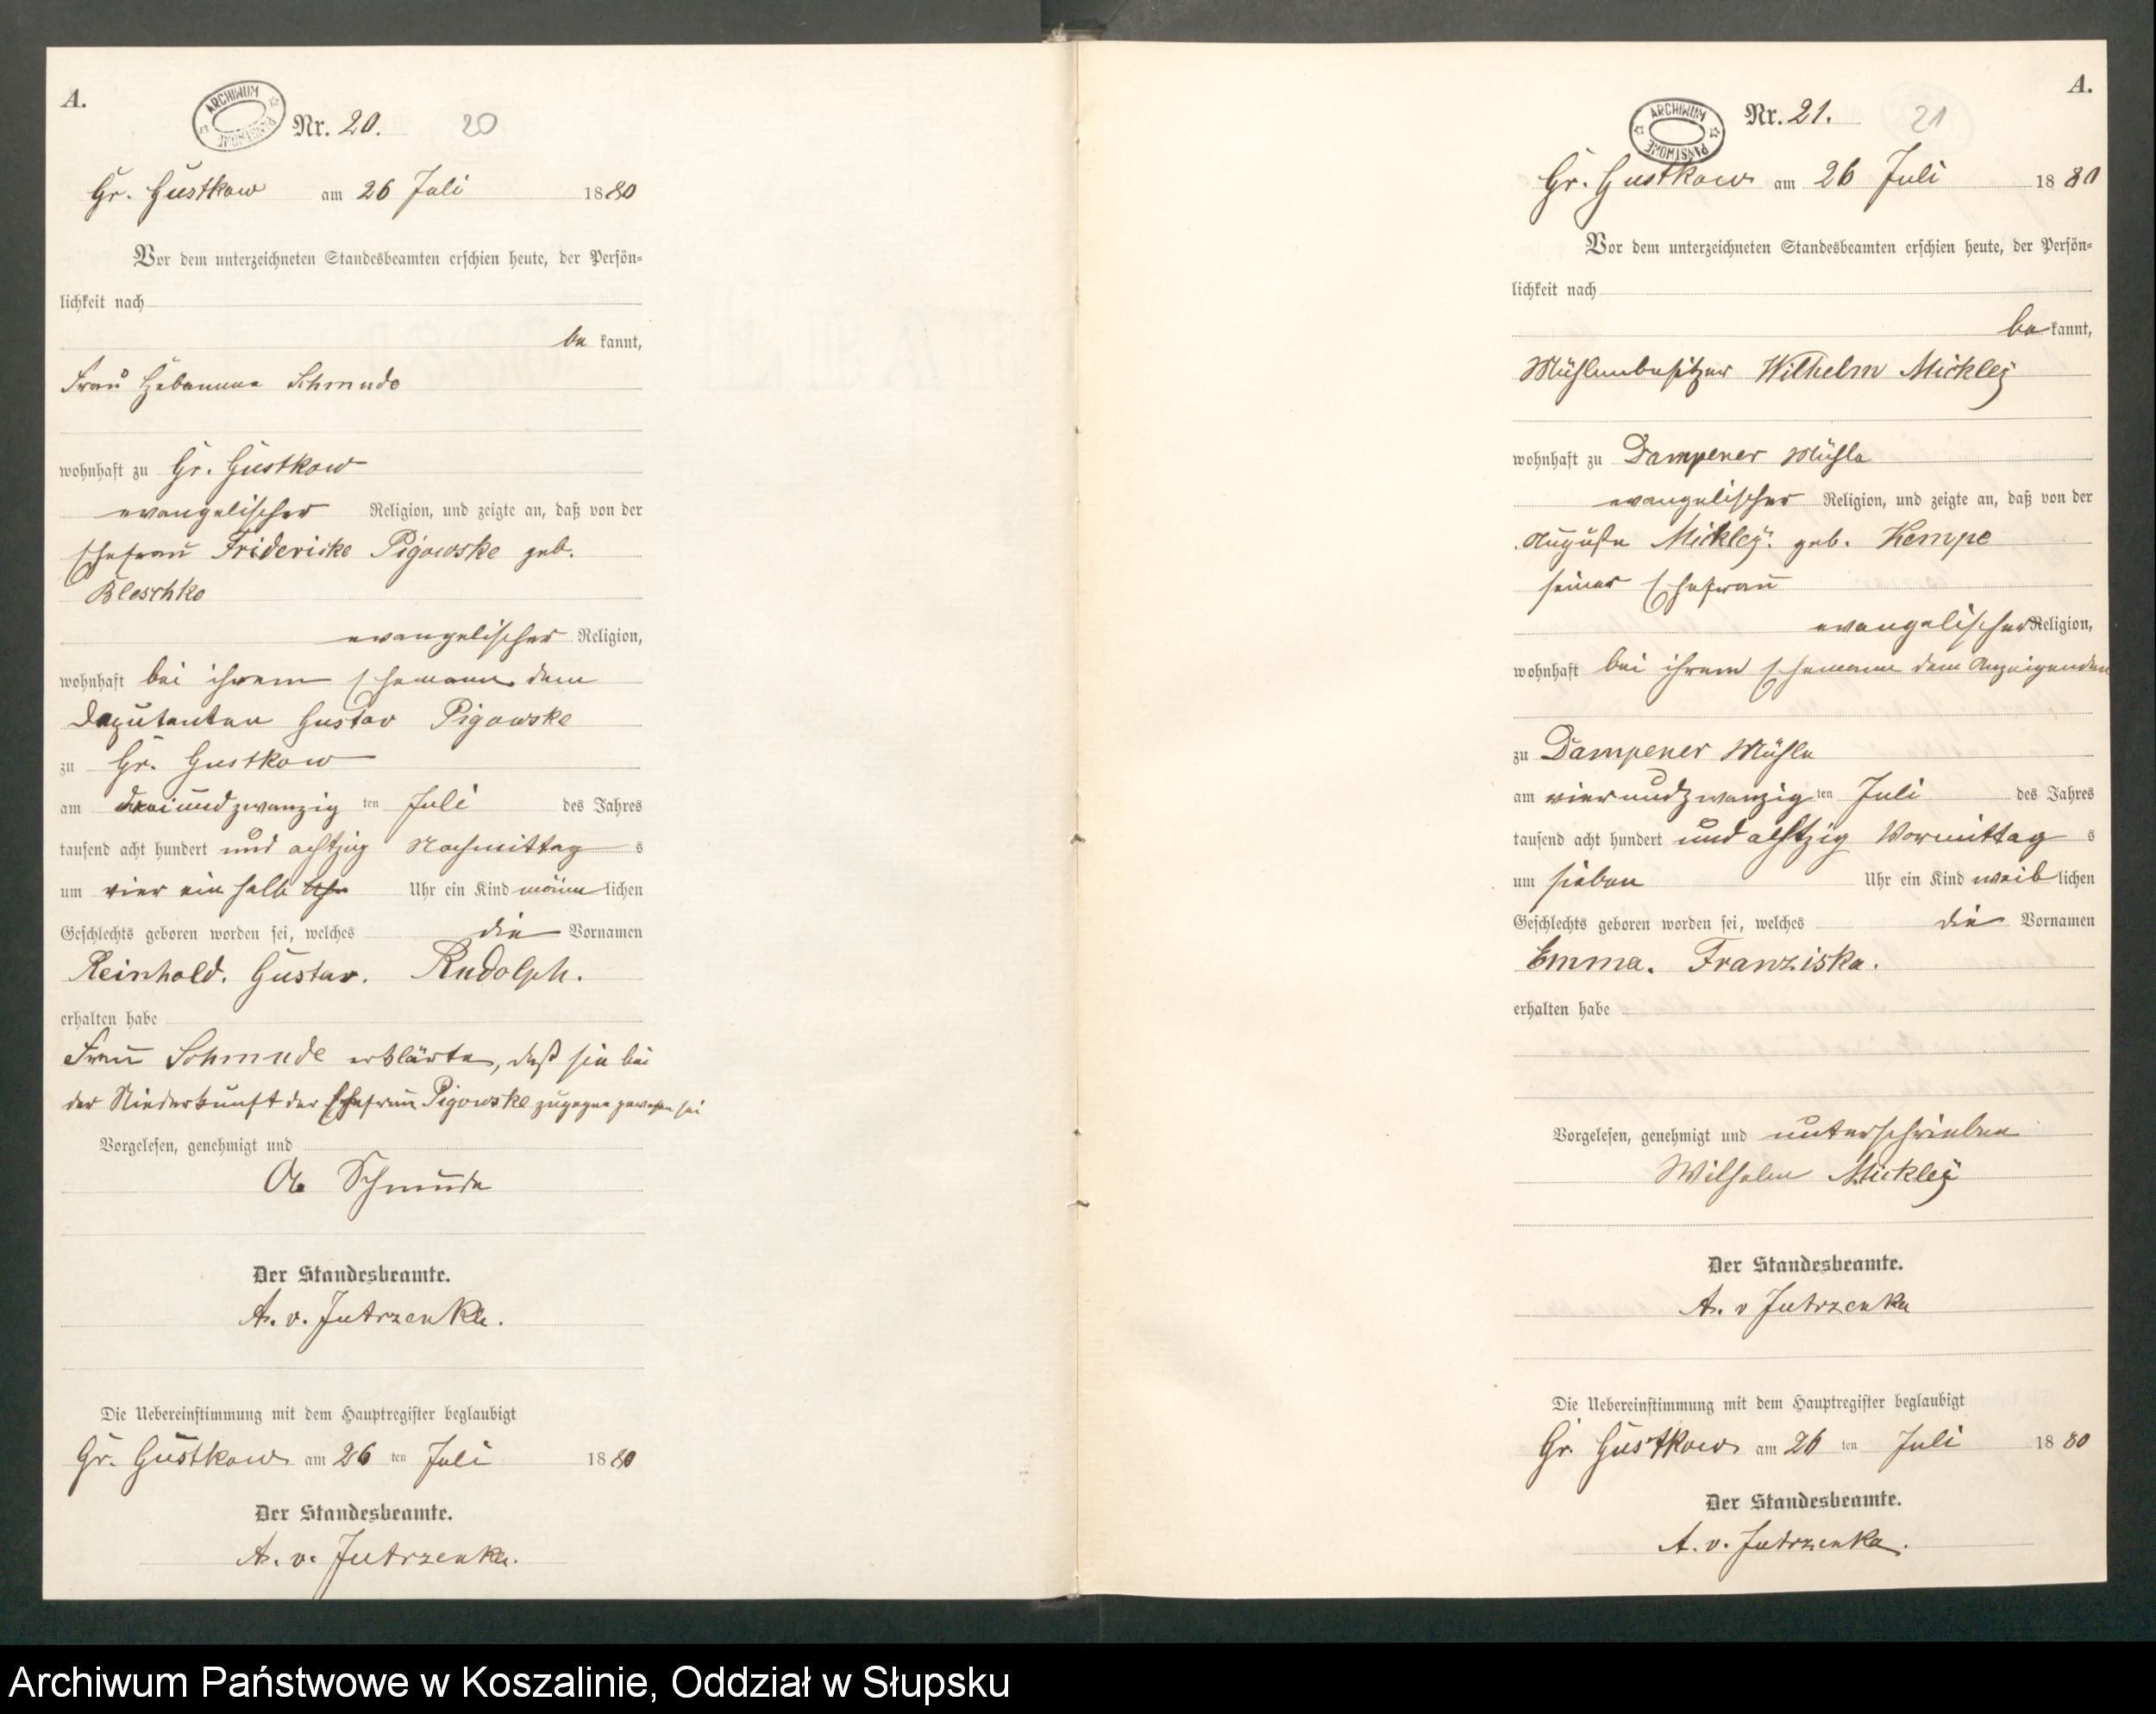 A.
ARCHIWUM PAŃSTWOWE
Nr. 20. 20
Gr. Gustkow am 26 Juli 1880
Vor dem unterzeichneten Standesbeamten erschien heute, der Persön-
lichkeit nach
be kannt,
Frau Hebamme Schmude
wohnhaft zu Gr. Gustkow
evangelischer Religion, und zeigte an, daß von der
Ehefrau Fridericke Pigowske geb.
Bleschke
evangelischer Religion,
wohnhaft bei ihrem Ehemann dem
Deputanten Gustav Pigowske
zu Gr. Gustkow
am dreiundzwanzig ten Juli des Jahres
tausend acht hundert und achtzig Nachmittag s
um vier ein halb Uhr Uhr ein Kind männ lichen
Geschlechts geboren worden sei, welches die Vornamen
Reinhold. Gustav. Rudolph.
erhalten habe
Frau Schmude erklärte, daß sie bei
der Niederkunft der Ehefrau Pigowske zugegen gewesen sei
Vorgelesen, genehmigt und
Schmude
Der Standesbeamte.
A. v. Jutrzenka.
Die Uebereinstimmung mit dem Hauptregister beglaubigt
Gr. Gustkow am 26 ten Juli 1880
Der Standesbeamte.
A. v. Jutrzenka.
A.
ARCHIWUM PAŃSTWOWE
Nr. 21. 21
Gr. Gustkow am 26 Juli 1880
Vor dem unterzeichneten Standesbeamten erschien heute, der Persön-
lichkeit nach
be kannt,
Mühlenbesitzer Wilhelm Mickley
wohnhaft zu Dampener Mühle
evangelischer Religion, und zeigte an, daß von der
Auguste Mickley geb. Kempe
seiner Ehefrau
evangelischer Religion,
wohnhaft bei ihrem Ehemann dem Anzeigenden
zu Dampener Mühle
am vierundzwanzig ten Juli des Jahres
tausend acht hundert und achtzig Vormittag s
um sieben Uhr ein Kind weib lichen
Geschlechts geboren worden sei, welches die Vornamen
Emma. Franziska.
erhalten habe
Vorgelesen, genehmigt und unterschrieben
Wilhelm Mickley
Der Standesbeamte.
A. v Jutrzenka
Die Uebereinstimmung mit dem Hauptregister beglaubigt
Gr. Gustkow am 26 ten Juli 1880
Der Standesbeamte.
A. v. Jutrzenka.
Archiwum Państwowe w Koszalinie, Oddział w Słupsku